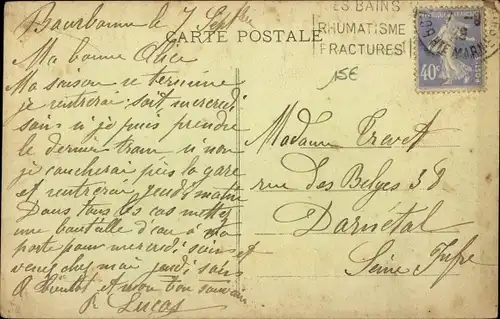 Bourbonne le 7 Septbre
CARTE POSTALE
LES BAINS
RHUMATISME
FRACTURES
HTE MARNE
40c
15€
Ma bonne Alice
Ma saison se termine
je rentrerai soit mercredi
soir si je puis prendre
le dernier train si non
je coucherai près la gare
et rentrerai jeudi matin
Dans tous les cas mettez
une bouteille d'eau à ma
porte pour mercredi soir et
venez chez moi jeudi soir
A bientôt et mon bon souvenir
Lucas
Madame Trevet
rue des Belges 30
Darnétal
Seine Infre